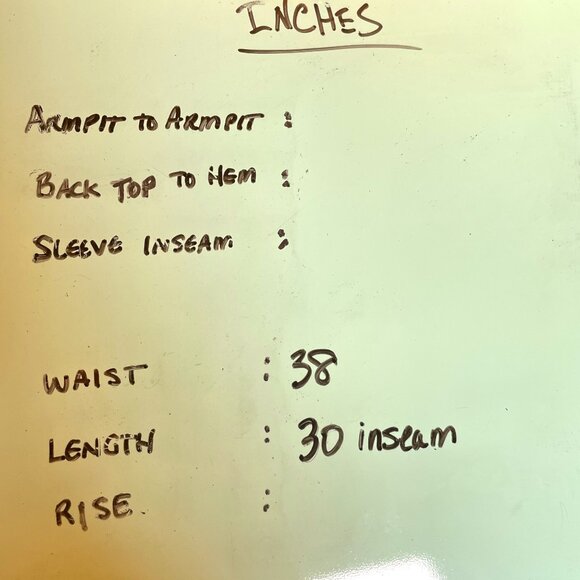 INCHES
ARMPIT TO ARMPIT :
BACK TOP TO HEM :
SLEEVE INSEAM :
WAIST : 38
LENGTH : 30 inseam
RISE. :